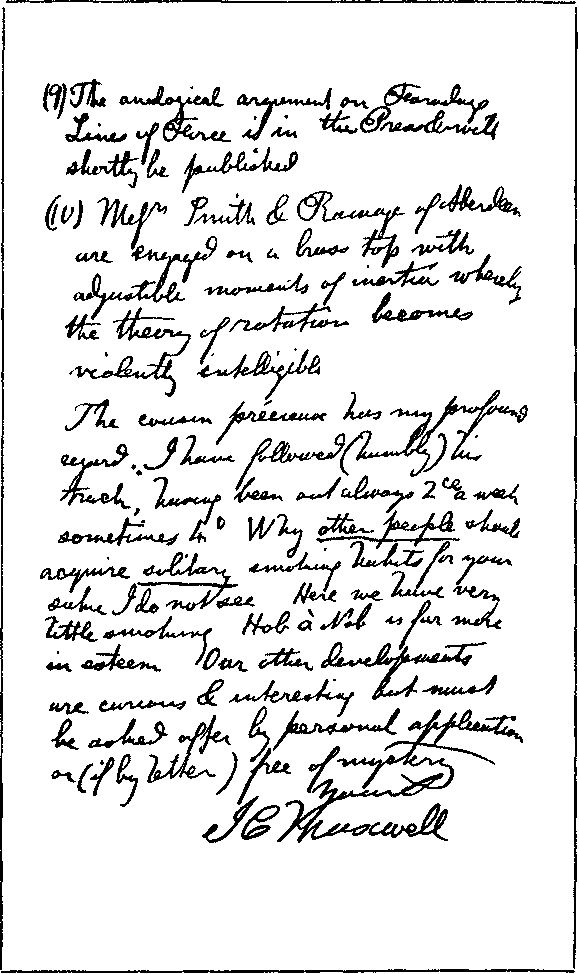 (9) The analogical argument on Faradays
Lines of Force is in the Press & will
shortly be published
(10) Messrs Smith & Ramage of Aberdeen
are engaged on a brass top with
adjustible moments of inertia whereby
the theory of rotation becomes
violently intelligible
The cousin précieuse has my profound
regard. I have followed (humbly) his
track, having been out always 2ce a week
sometimes Why other people should
acquire solitary smoking habits for your
sake I do not see Here we have very
little smoking Hob à Nob is far more
in esteem Our other developments
are curious & interesting but must
be asked after by personal application
or (if by letter) free of mystery
Yours
J C Maxwell